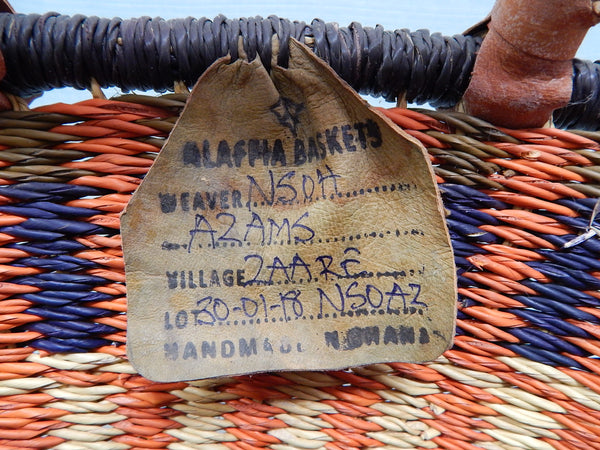 ALAFHA BASKETS
WEAVER NSOH
AZAMS
VILLAGE ZAARE
LOT 30-01-18 NSOAZ
HANDMADE IN GHANA